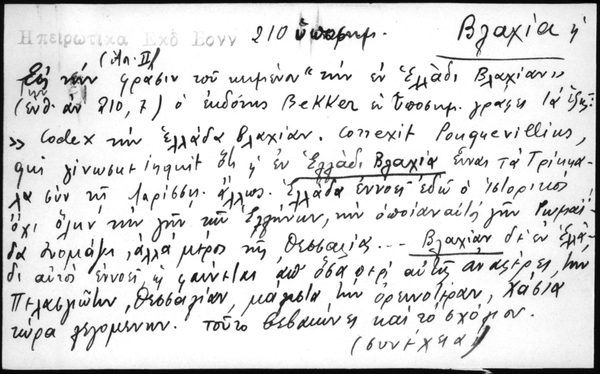 Ηπειρωτικα Εκδ Βονν 210 ὑποσημ. Βλαχία ἡ
(Ηπ. II)
Εἰς τὴν φράσιν τοῦ κειμένου "τὴν ἐν Ἑλλάδι Βλαχίαν"
(ἔνθ. ἀν 210, 7) ὁ ἐκδότης Bekker ἐν ὑποσημ. γράφει τὰ ἑξῆς
» Codex τὴν ἑλλάδα βλαχίαν. Correxit Pouquevillius,
qui γίνωσκε inquit ὅτι ἡ ἐν Ἑλλάδι Βλαχία εἶναι τὰ Τρίκκα-
λα σὺν τῇ Λαρίσσῃ. ἄλλως. Ἑλλάδα ἐννοεῖ ἐδῶ ὁ ἱστορικὸς
ὄχι ὅλην τὴν γῆν τῶν Ἑλλήνων, τὴν ὁποίαν αὐτὸς γῆν Ῥωμαΐ-
δα ὀνομάζει, ἀλλὰ μέρος τῆς Θεσσαλίας... Βλαχίαν δὲ ἐν Ἑλλά-
δι αὐτὸς ἐννοεῖ ὡς φαίνεται ἀπ' ὅσα περὶ αὐτῆς ἀναφέρει, τὴν
Πελασγιῶτιν Θεσσαλίαν, μάλιστα τὴν ὀρεινοτέραν, Χάσια
τώρα λεγομένην. τοῦτο βεβαιώνει καὶ τὸ σχόλιον.
(συνέχεια)